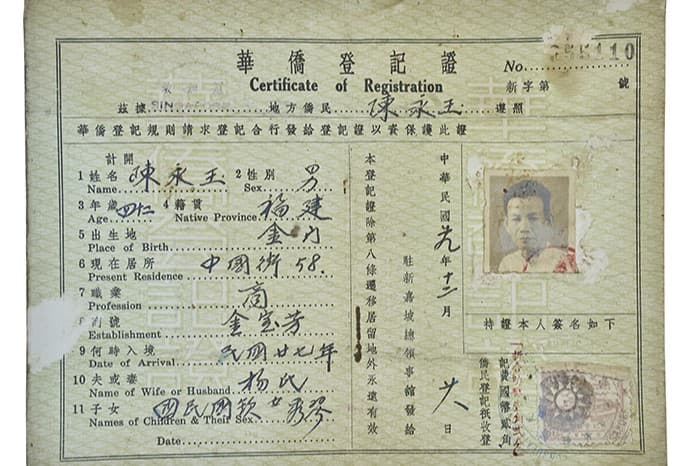 華僑登記證
Certificate of Registration
No. 110
新字第 號
茲據 SIN 地方僑民 陳永玉 遵照
華僑登記規則請求登記合行發給登記證以資保護此證
計開
1 姓名 陳永玉 2 性別 男
Name Sex
3 年歲 四二 4 籍貫 福建
Age Native Province
5 出生地 金门
Place of Birth
6 現在居所 中國街 58.
Present Residence
7 職業 商
Profession
8 商號 金宝芳
Establishment
9 何時入境 民國廿七年
Date of Arrival
10 夫或妻 杨氏
Name of Wife or Husband
11 子女 國民國
Names of Children & Their Sex
Date
本登記證除第八條遷移居留地外永遠有效
中華民國 年十二月 日
駐新嘉坡總領事館發給
持證本人簽名如下
記費國幣貳角
僑民登記祇收登